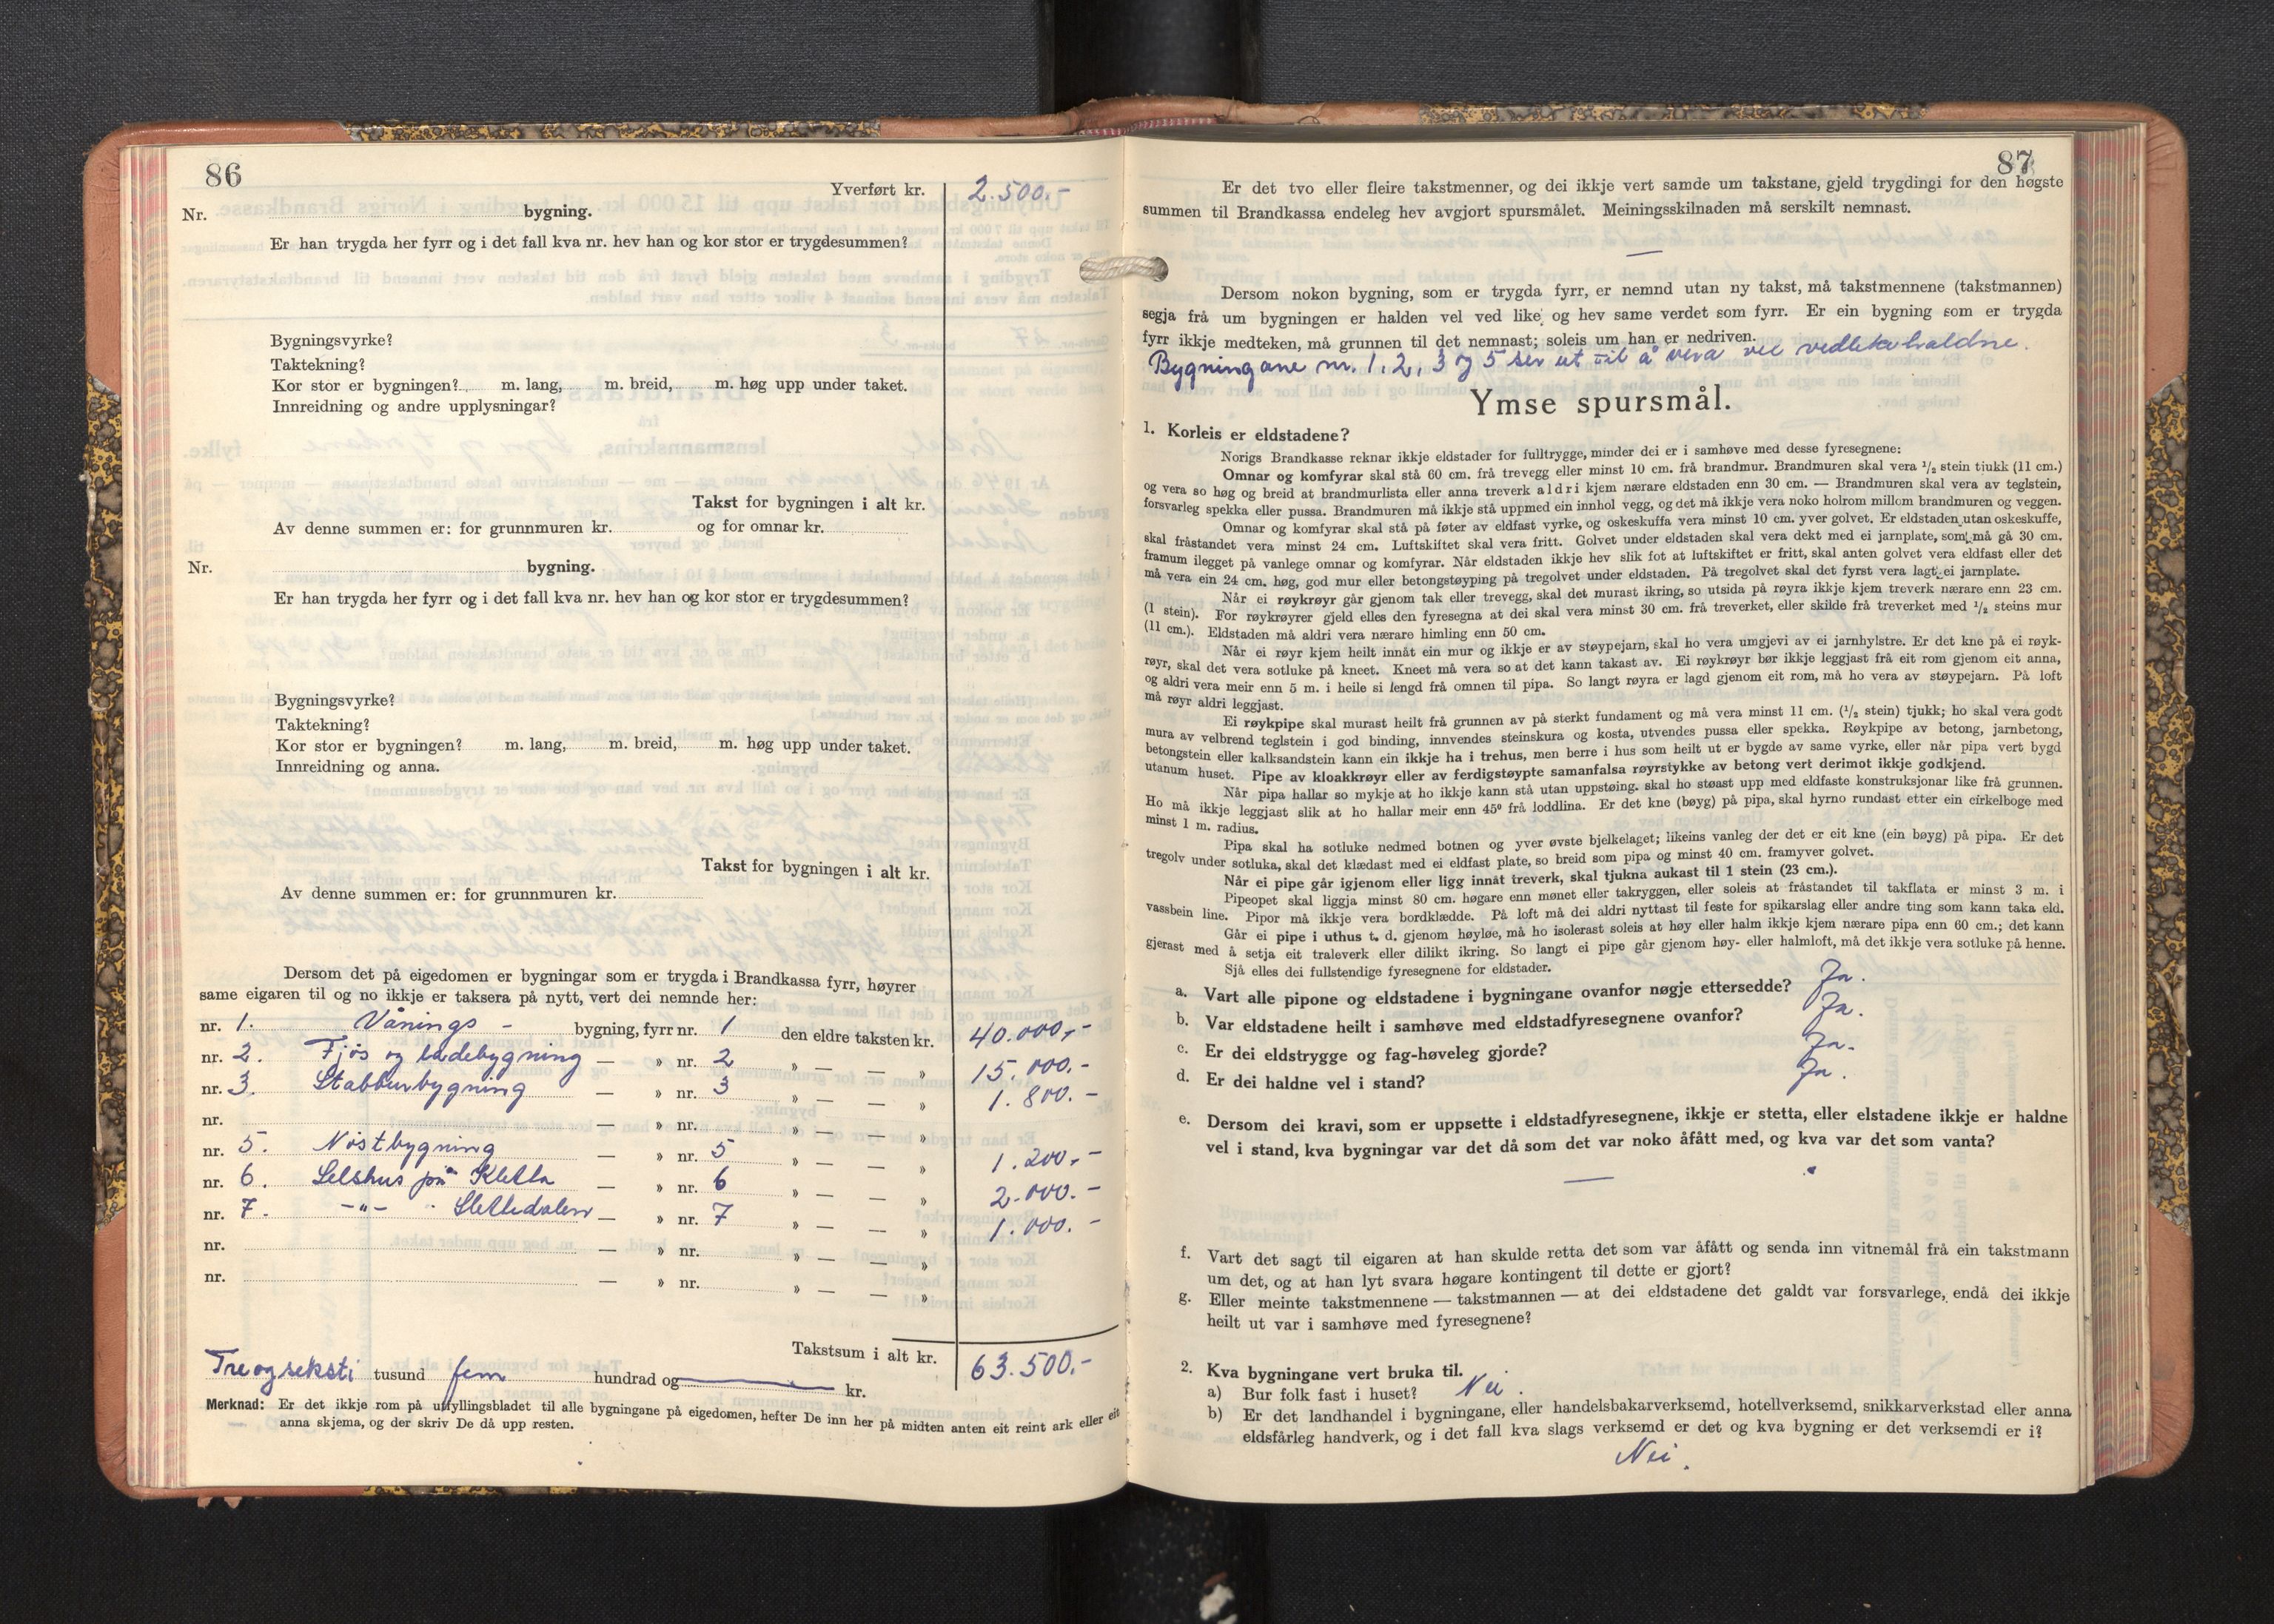 86
Yverført kr. 2.500.-
Nr. bygning.
Er han trygda her fyrr og i det fall kva nr. hev han og kor stor er trygdesummen?
Bygningsvyrke?
Taktekning?
Kor stor er bygningen? m. lang, m. breid, m. høg upp under taket.
Innreidning og andre upplysningar?
Takst for bygningen i alt kr.
Av denne summen er: for grunnmuren kr. og for omnar kr.
Nr. bygning.
Er han trygda her fyrr og i det fall kva nr. hev han og kor stor er trygdesummen?
Bygningsvyrke?
Taktekning?
Kor stor er bygningen? m. lang, m. breid, m. høg upp under taket.
Innreidning og anna.
Takst for bygningen i alt kr.
Av denne summen er: for grunnmuren kr.
Dersom det på eigedomen er bygningar som er trygda i Brandkassa fyrr, høyrer
same eigaren til og no ikkje er taksera på nytt, vert dei nemnde her:
nr. 1. Vånings - bygning, fyrr nr. 1 den eldre taksten kr. 40.000,-
nr. 2. Fjøs og ladebygning — » nr. 2 » — — » 15.000.-
nr. 3. Stabburbygning — » nr. 3 » — — » 1.800.-
nr. — » nr. » — — »
nr. 5. Nöstbygning — » nr. 5 » — — » 1.200,-
nr. 6. Selshus på Kletta — » nr. 6 » — — » 2.000.-
nr. 7. -"- Slettedalen — » nr. 7 » — — » 1.000.-
nr. — » nr. » — — »
nr. — » nr. » — — »
Takstsum i alt kr. 63.500.-
Tre og seksti tusund fem hundrad og — kr.
Merknad: Er det ikkje rom på utfyllingsbladet til alle bygningane på eigedomen, hefter De inn her på midten anten eit reint ark eller eit
anna skjema, og der skriv De då upp resten.
87
Er det tvo eller fleire takstmenner, og dei ikkje vert samde um takstane, gjeld trygdingi for den høgste
summen til Brandkassa endeleg hev avgjort spursmålet. Meiningsskilnaden må serskilt nemnast.
—
Dersom nokon bygning, som er trygda fyrr, er nemnd utan ny takst, må takstmennene (takstmannen)
segja frå um bygningen er halden vel ved like og hev same verdet som fyrr. Er ein bygning som er trygda
fyrr ikkje medteken, må grunnen til det nemnast; soleis um han er nedriven.
Bygningane nr. 1, 2, 3 og 5 ser ut til å vera vel vedlikehaldne.
Ymse spursmål.
1. Korleis er eldstadene?
Norigs Brandkasse reknar ikkje eldstader for fulltrygge, minder dei er i samhøve med desse fyresegnene:
Omnar og komfyrar skal stå 60 cm. frå trevegg eller minst 10 cm. frå brandmur. Brandmuren skal vera 1/2 stein tjukk (11 cm.)
og vera so høg og breid at brandmurlista eller anna treverk aldri kjem nærare eldstaden enn 30 cm. — Brandmuren skal vera av teglstein,
forsvarleg spekka eller pussa. Brandmuren må ikkje stå uppmed ein innhol vegg, og det må ikkje vera noko holrom millom brandmuren og veggen.
Omnar og komfyrar skal stå på føter av eldfast vyrke, og oskeskuffa vera minst 10 cm. yver golvet. Er eldstaden utan oskeskuffe,
skal fråstandet vera minst 24 cm. Luftskiftet skal vera fritt. Golvet under eldstaden skal vera dekt med ei jarnplate, som må gå 30 cm.
framum ilegget på vanlege omnar og komfyrar. Når eldstaden ikkje hev slik fot at luftskiftet er fritt, skal anten golvet vera eldfast eller det
må vera ein 24 cm. høg, god mur eller betongstøyping på tregolvet under eldstaden. På tregolvet skal det fyrst vera lagt ei jarnplate.
Når ei røykrøyr går gjenom tak eller trevegg, skal det murast ikring, so utsida på røyra ikkje kjem treverk nærare enn 23 cm.
(1 stein). For røykrøyrer gjeld elles den fyresegna at dei skal vera minst 30 cm. frå treverket, eller skilde frå treverket med 1/2 steins mur
(11 cm.). Eldstaden må aldri vera nærare himling enn 50 cm.
Når ei røyr kjem heilt innåt ein mur og ikkje er av støypejarn, skal ho vera umgjevi av ei jarnhylstre. Er det kne på ei røyk-
røyr, skal det vera sotluke på kneet. Kneet må vera so at det kann takast av. Ei røykrøyr bør ikkje leggjast frå eit rom gjenom eit anna,
og aldri vera meir enn 5 m. i heile si lengd frå omnen til pipa. So langt røyra er lagd gjenom eit rom, må ho vera av støypejarn. På loft
må røyr aldri leggjast.
Ei røykpipe skal murast heilt frå grunnen av på sterkt fundament og må vera minst 11 cm. (1/2 stein) tjukk; ho skal vera godt
mura av velbrend teglstein i god binding, innvendes steinskura og kosta, utvendes pussa eller spekka. Røykpipe av betong, jarnbetong,
betongstein eller kalksandstein kann ein ikkje ha i trehus, men berre i hus som heilt ut er bygde av same vyrke, eller når pipa vert bygd
utanum huset. Pipe av kloakkrøyr eller av ferdigstøypte samanfalsa røyrstykke av betong vert derimot ikkje godkjend.
Når pipa hallar so mykje at ho ikkje kann stå utan uppstøing. skal ho støast upp med eldfaste konstruksjonar like frå grunnen.
Ho må ikkje leggjast slik at ho hallar meir enn 45° frå loddlina. Er det kne (bøyg) på pipa, skal hyrno rundast etter ein cirkelboge med
minst 1 m. radius.
Pipa skal ha sotluke nedmed botnen og yver øvste bjelkelaget; likeins vanleg der det er eit kne (ein bøyg) på pipa. Er det
tregolv under sotluka, skal det klædast med ei eldfast plate, so breid som pipa og minst 40 cm. framyver golvet.
Når ei pipe går igjenom eller ligg innåt treverk, skal tjukna aukast til 1 stein (23 cm.).
Pipeopet skal liggja minst 80 cm. høgare enn mønet eller takryggen, eller soleis at fråstandet til takflata er minst 3 m. i
vassbein line. Pipor må ikkje vera bordklædde. På loft må dei aldri nyttast til feste for spikarslag eller andre ting som kann taka eld.
Går ei pipe i uthus t. d. gjenom høyløe, må ho isolerast soleis at høy eller halm ikkje kjem nærare pipa enn 60 cm.; det kann
gjerast med å setja eit traleverk eller dilikt ikring. So langt ei pipe går gjenom høy- eller halmloft, må det ikkje vera sotluke på henne.
Sjå elles dei fullstendige fyresegnene for eldstader.
a. Vart alle pipone og eldstadene i bygningane ovanfor nøgje ettersedde? Ja.
b. Var eldstadene heilt i samhøve med eldstadfyresegnene ovanfor? Ja.
c. Er dei eldstrygge og fag-høveleg gjorde? Ja.
d. Er dei haldne vel i stand? Ja.
e. Dersom dei kravi, som er uppsette i eldstadfyresegnene, ikkje er stetta, eller elstadene ikkje er haldne
vel i stand, kva bygningar var det då som det var noko åfått med, og kva var det som vanta?
—
f. Vart det sagt til eigaren at han skulde retta det som var åfått og senda inn vitnemål frå ein takstmann
um det, og at han lyt svara høgare kontingent til dette er gjort?
g. Eller meinte takstmennene — takstmannen — at dei eldstadene det galdt var forsvarlege, endå dei ikkje
heilt ut var i samhøve med fyresegnene?
2. Kva bygningane vert bruka til.
a) Bur folk fast i huset? Nei.
b) Er det landhandel i bygningane, eller handelsbakarverksemd, hotellverksemd, snikkarverkstad eller anna
eldsfårleg handverk, og i det fall kva slags verksemd er det og kva bygning er det verksemdi er i?
Nei.